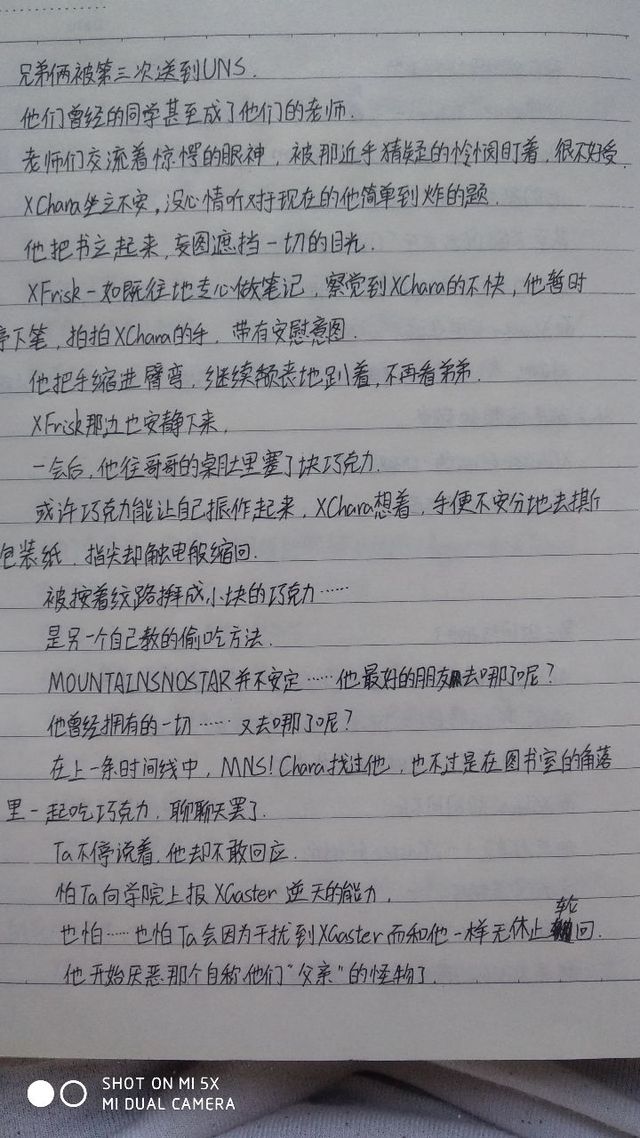 兄弟俩被第三次送到UNS.
他们曾经的同学甚至成了他们的老师.
老师们交流着惊愕的眼神，被那近乎猜疑的怜悯盯着，很不好受.
XChara坐立不安，没心情听对于现在的他简单到炸的题.
他把书立起来，妄图遮挡一切的目光.
XFrisk一如既往地专心做笔记，察觉到XChara的不快，他暂时
停下笔，拍拍XChara的手，带有安慰意图.
他把手缩进臂弯，继续颓丧地趴着，不再看弟弟.
XFrisk那边也安静下来.
一会后，他往哥哥的桌肚里塞了块巧克力.
或许巧克力能让自己振作起来，XChara想着，手便不安分地去撕
包装纸，指尖却触电般缩回.
被按着纹路掰成小块的巧克力……
是另一个自己教的偷吃方法.
MOUNTAINSNOSTAR并不安定……他最好的朋友去哪了呢？
他曾经拥有的一切……又去哪了呢？
在上一条时间线中，MNS!Chara找过他，也不过是在图书室的角落
里一起吃巧克力，聊聊天罢了.
Ta不停说着，他却不敢回应.
怕Ta向学院上报XGaster逆天的能力.
也怕……也怕Ta会因为干扰到XGaster而和他一样无休止轮回.
他开始厌恶那个自称他们“父亲”的怪物了.
SHOT ON MI 5X
MI DUAL CAMERA